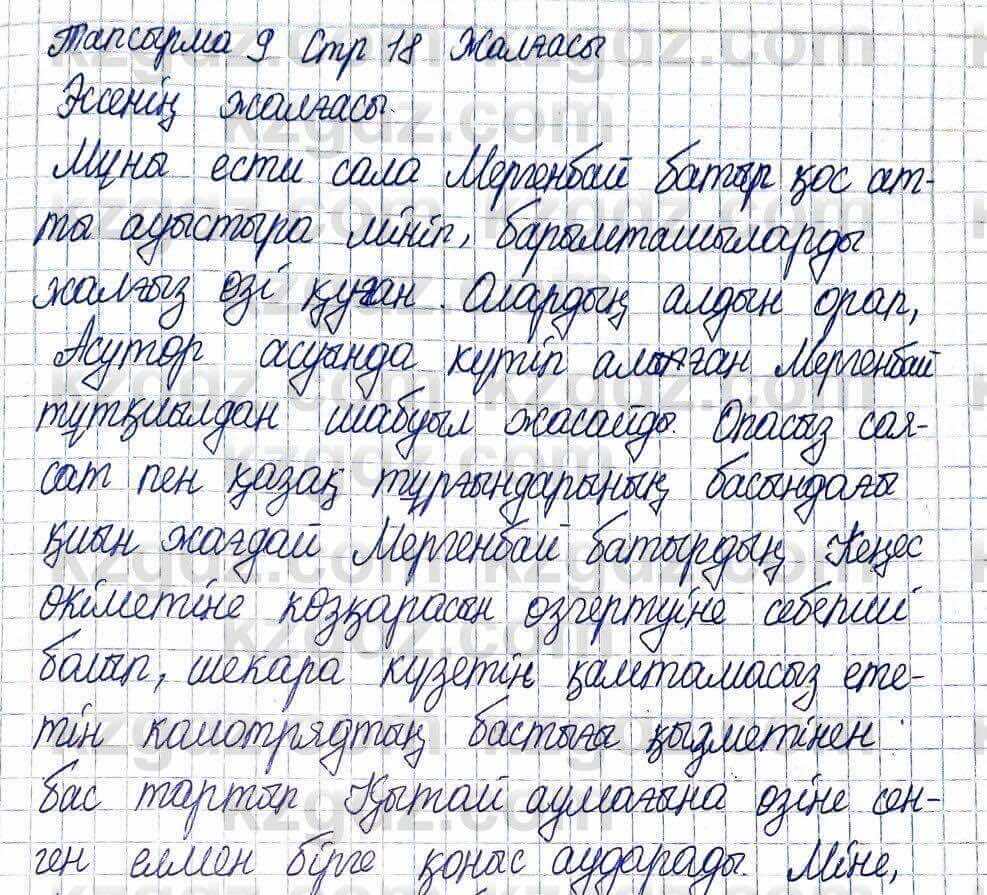 Тапсырма 9 Стр 18 Жалғасы
Эссенің жалғасы.
Мұны ести сала Мергенбай батыр қос ат-
ты ауыстыра мініп, барымташыларды
жалғыз өзі қуған. Олардың алдын орап,
Асутөр асуында күтіп алған Мергенбай
тұтқиылдан шабуыл жасайды. Опасыз сая-
сат пен қазақ тұрғындарының басындағы
қиын жағдай Мергенбай батырдың Кеңес
өкіметіне көзқарасын өзгертуіне себепші
болып, шекара күзетін қамтамасыз ете-
тін комотрядтың бастығы қызметінен
бас тартып Қытай аумағына өзіне сен-
ген елмен бірге қоныс аударады. Міне,